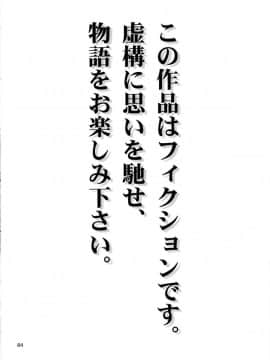 この作品はフィクションです。
虚構に思いを馳せ、
物語をお楽しみ下さい。
84